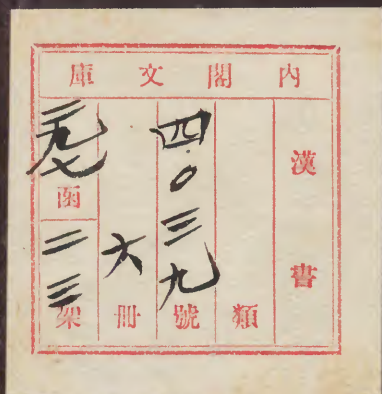 内閣文庫
漢書
類
四〇三九號
六冊
九七函
二三架